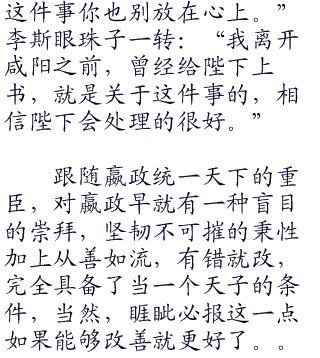 这件事你也别放在心上。”
李斯眼珠子一转：“我离开
咸阳之前，曾经给陛下上
书，就是关于这件事的，相
信陛下会处理的很好。”
跟随嬴政统一天下的重
臣，对嬴政早就有一种盲目
的崇拜，坚韧不可摧的秉性
加上从善如流，有错就改，
完全具备了当一个天子的条
件，当然，睚眦必报这一点
如果能够改善就更好了。。